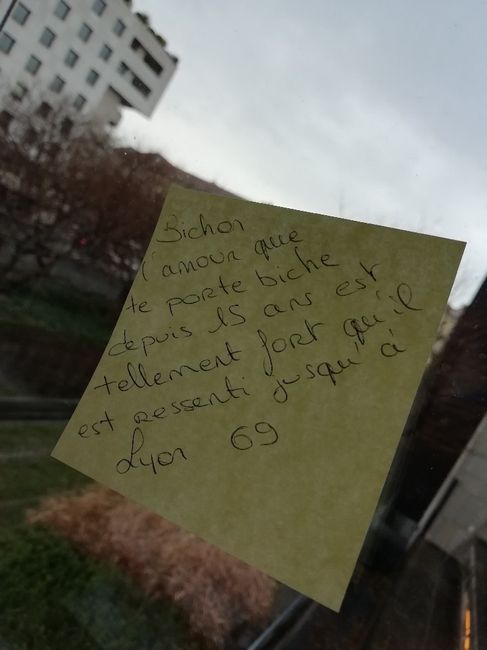 Bichon
l'amour que
te porte biche
depuis 15 ans est
tellement fort qu'il
est ressenti jusqu'à
Lyon 69